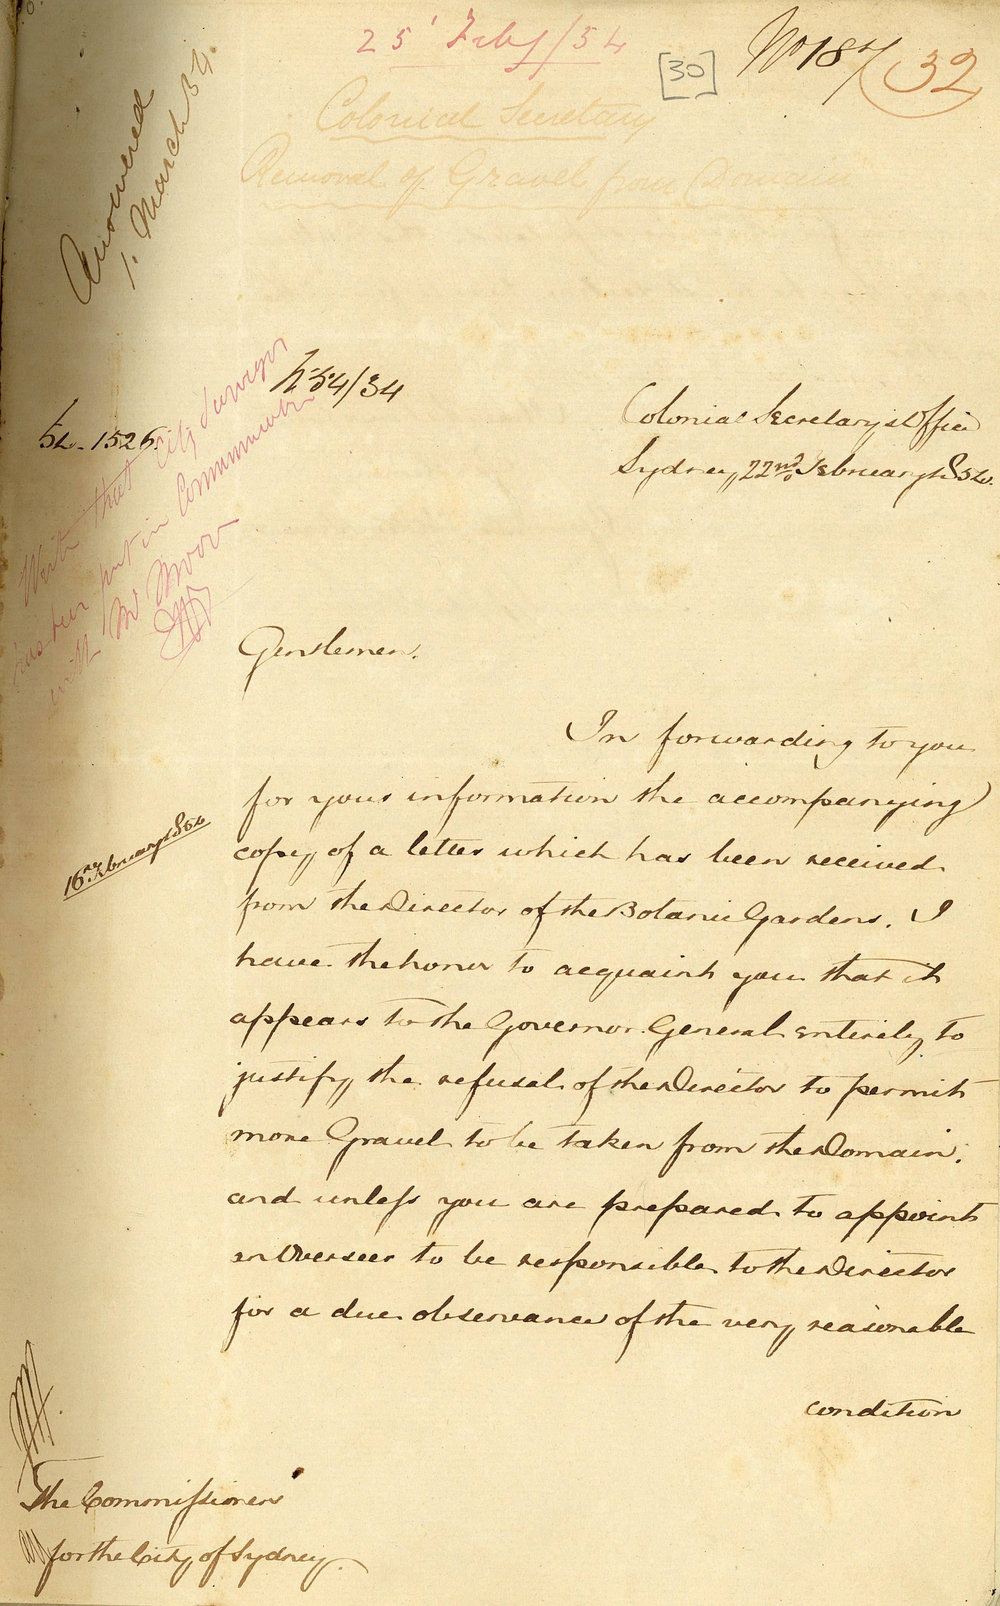 25' Feby/54
[30]
No 187
32
Colonial Secretary
Removal of Gravel from Domain
Answered
1. March 54.
54/34
54-1526.
Write that City Surveyor
has been put in Communication
with Mr Moore
Colonial Secretary's Office
Sydney, 22nd February 1854.
Gentlemen.
In forwarding to you
for your information the accompanying
16th February 1854
copy of a letter which has been received
from the Director of the Botanic Gardens. I
have the honor to acquaint you that it
appears to the Governor General entirely to
justify the refusal of the Director to permit
more Gravel to be taken from the Domain.
and unless you are prepared to appoint
an Overseer to be responsible to the Director
for a due observance of the very reasonable
condition
The Commissioners
for the City of Sydney.